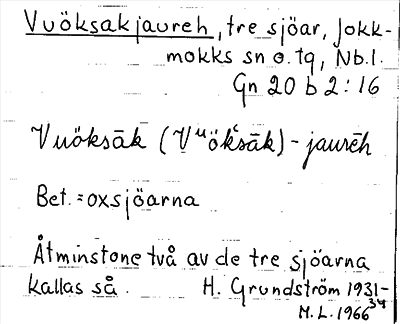 Vuöksakjaureh, tre sjöar, Jokk-
mokks sn o. tq, Nb.l.
Gn 20 b 2:16
Vuöksāk (Vᵘökˈsāk)-jaurēh
Bet. = oxsjöarna
Åtminstone två av de tre sjöarna
kallas så. H. Grundström 1931-
34
M.L. 1966